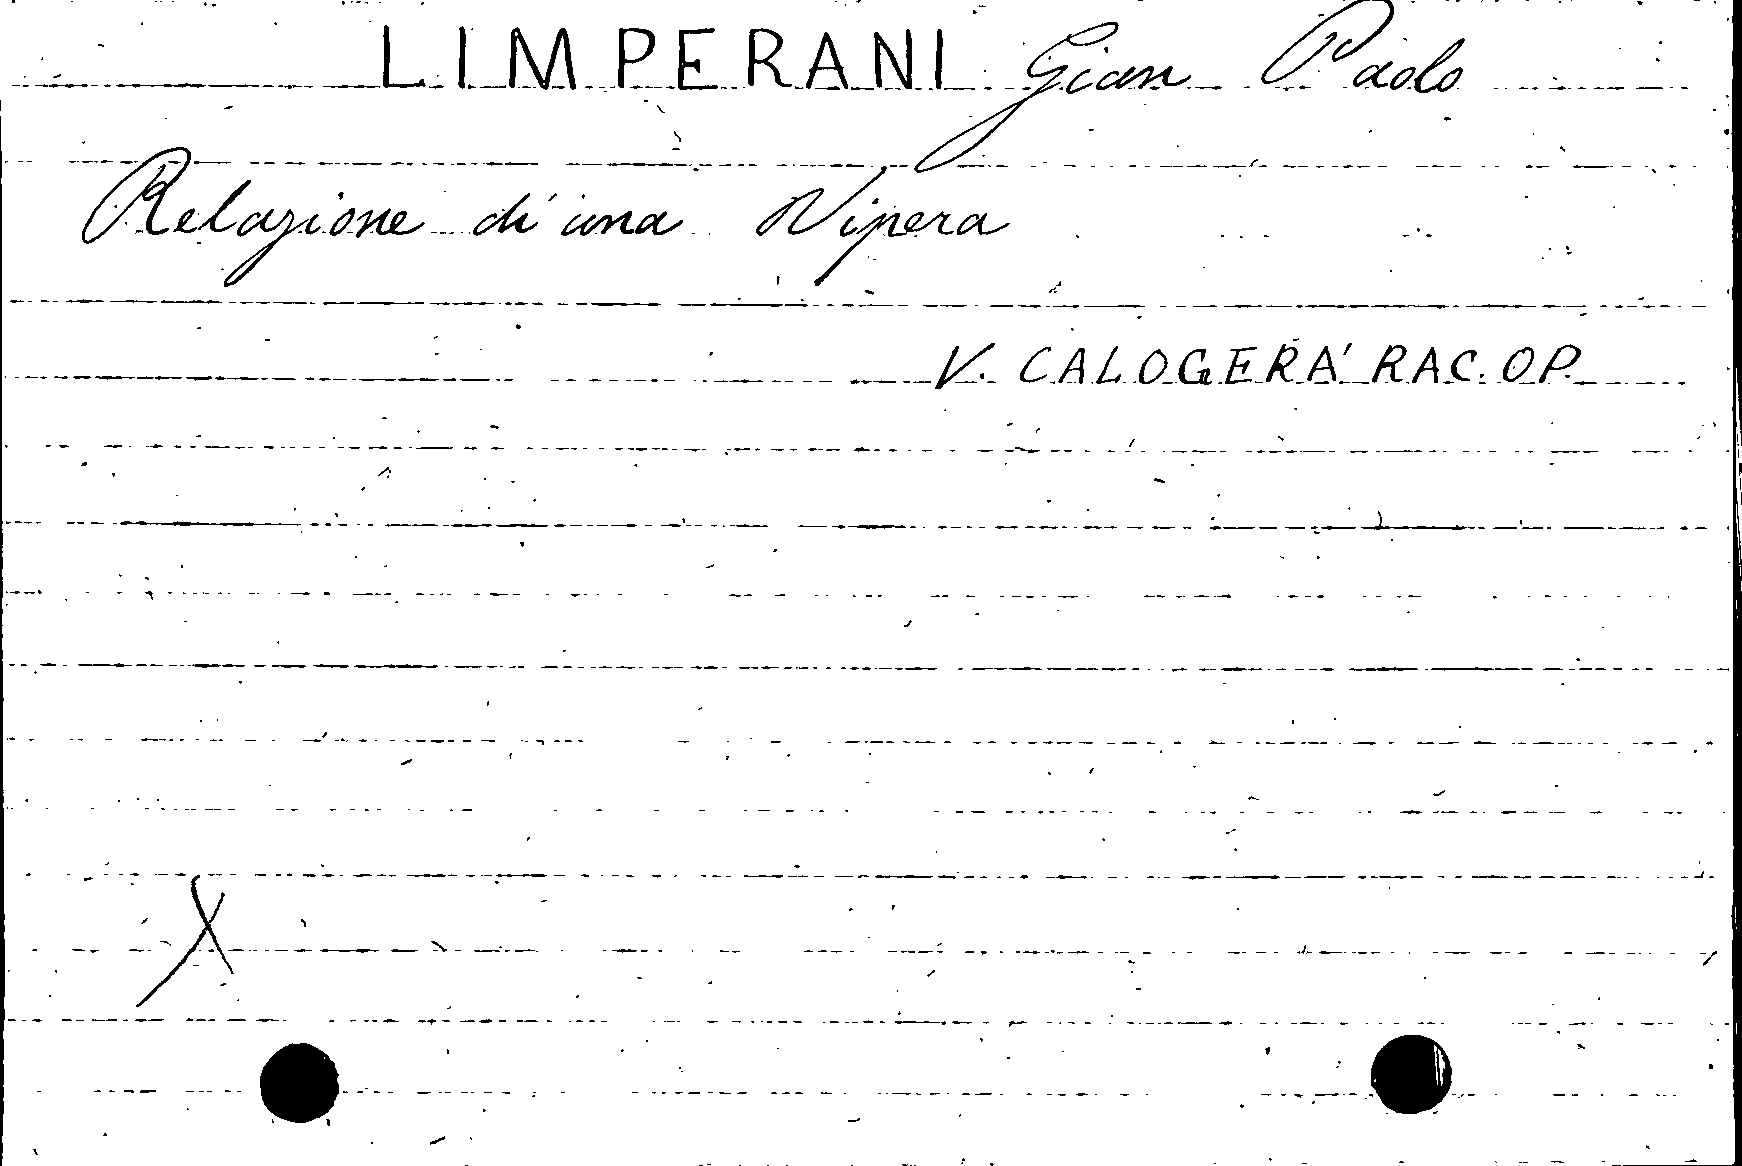 LIMPERANI Gian Paolo
Relazione di una Vipera
V. CALOGERÁ RAC. OP.
X